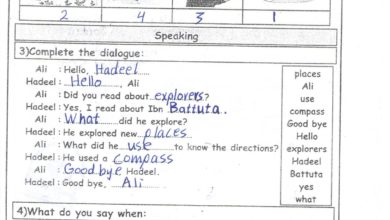 2 4 3 1
Speaking
3)Complete the dialogue:
Ali : Hello, Hadeel......
Hadeel : Hello......, Ali
Ali : Did you read about explorers?
Hadeel : Yes, I read about Ibn Battuta.
Ali : What......did he explore?
Hadeel : He explored new places
Ali : What did he use......to know the directions?
Hadeel : He used a compass
Ali : Good bye Hadeel.
Hadeel : Good bye, ....Ali....
places
Ali
use
compass
Good bye
Hello
explorers
Hadeel
Battuta
yes
what
4)What do you say when: